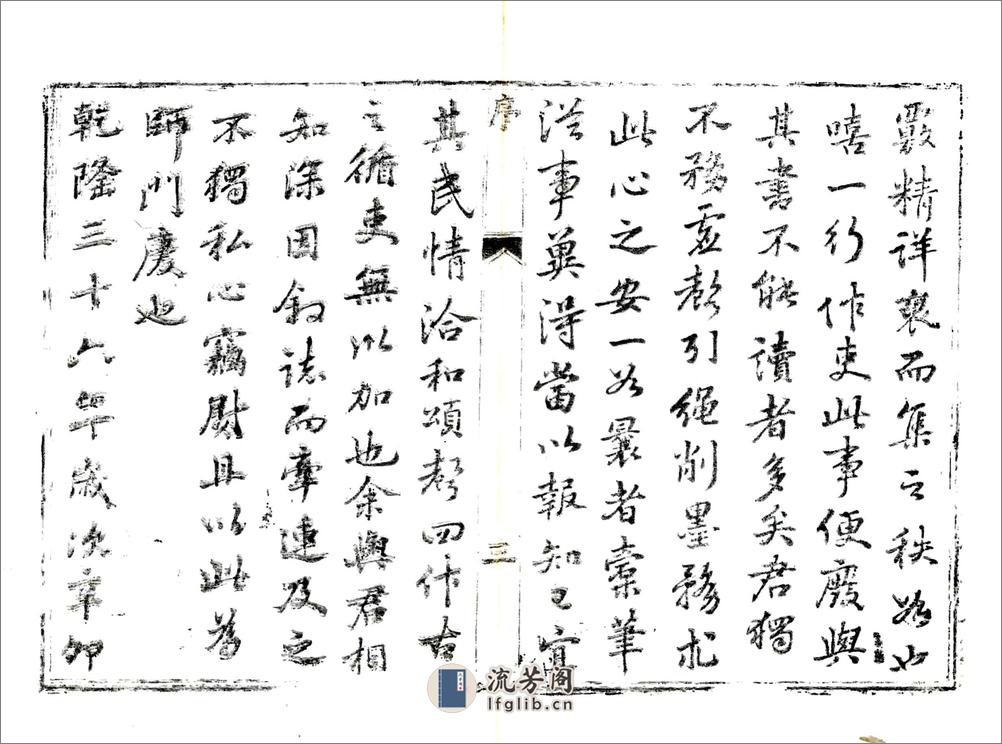 覈精詳裒而集之秩如也
嘻一行作吏此事便廢與
其書不能讀者多矣君獨
不務虛聲引繩削墨務求
此心之安一如曩者橐筆
從事冀得當以報知己宜
序
三
其民情洽和頌聲四作古
之循吏無以加也余與君相
知深因敘誌而牽連及之
不獨私心竊慰且以此為
師門慶也
乾隆三十六年歲次辛卯
流芳阁
lfglib.cn